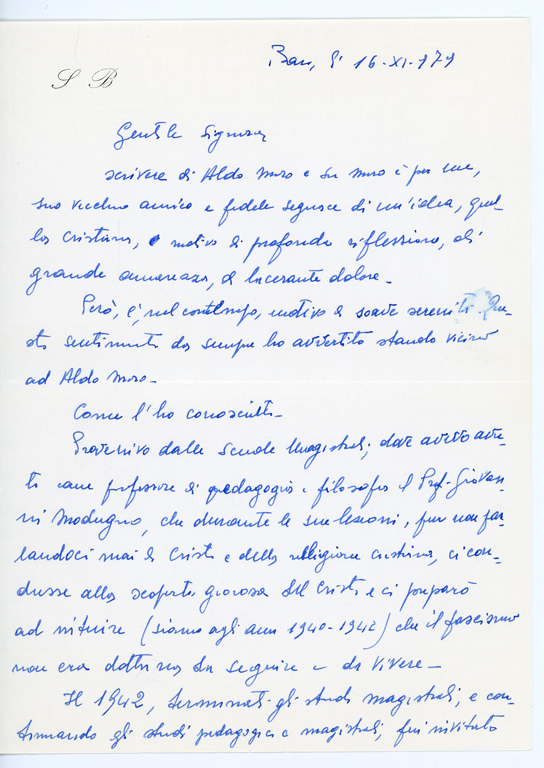 Bari, lì 16-XI-1979
S B
Gentile Signora,
scrivere di Aldo Moro e su Moro è per me,
suo vecchio amico e fedele seguace di un'idea, quel-
la cristiana, motivo di profonda riflessione, di
grande amarezza, di lacerante dolore.
Però, è, nel contempo, motivo di soave serenità. Que-
sto sentimento da sempre ho avvertito stando vicino
ad Aldo Moro.
Come l'ho conosciuto.
Provenivo dalle Scuole Magistrali, dove avevo avu-
to come professore di pedagogia e filosofia il Prof. Giovan-
ni Modugno, che durante le sue lezioni, pur non par-
landoci mai di Cristo e della religione cristiana, ci con-
dusse alla scoperta gioiosa del Cristo e ci preparò
ad intuire (siamo agli anni 1940-1942) che il fascismo
non era dottrina da seguire e da vivere.
Il 1942, terminati gli studi magistrali, e con-
tinuando gli studi pedagogici e magistrali, fui invitato